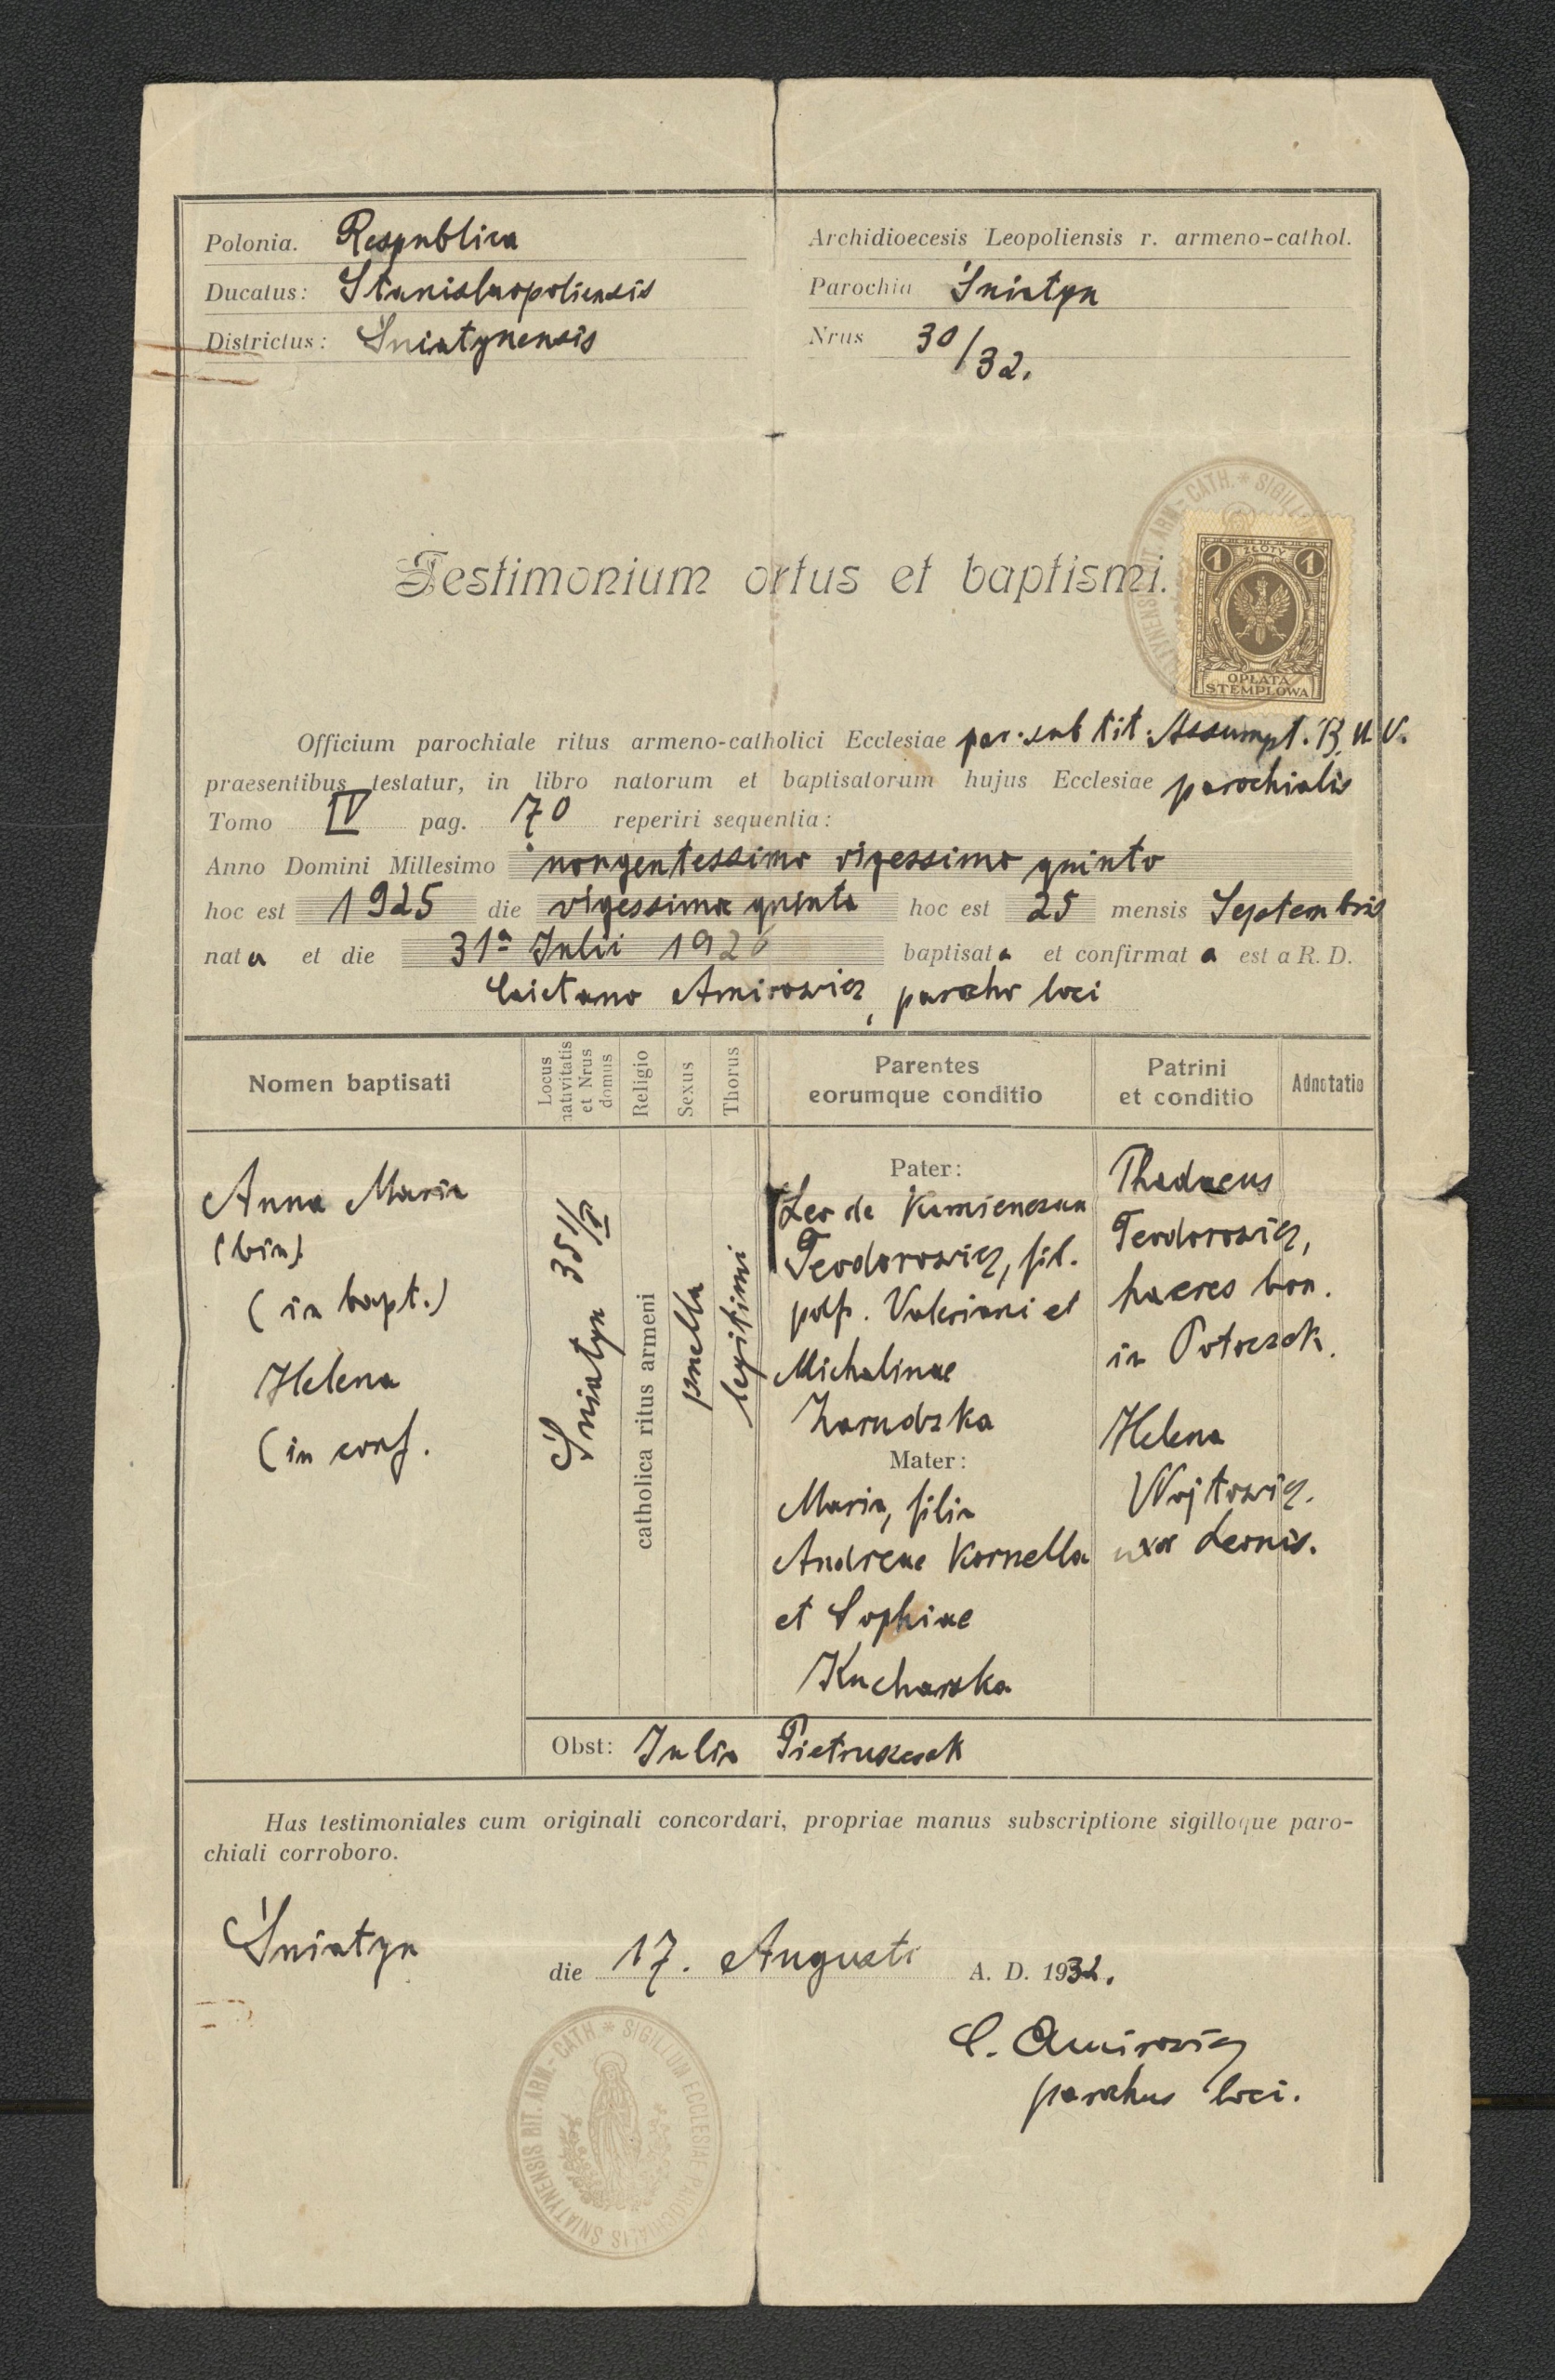 Polonia. Respublica
Ducatus: Stanislaopoliensis
Districtus: Śniatynensis
Archidioecesis Leopoliensis r. armeno-cathol.
Parochia Śniatyn
Nrus 30/32.
Testimonium ortus et baptismi.
1 ZŁOTY 1
OPŁATA
STEMPLOWA
Officium parochiale ritus armeno-catholici Ecclesiae par. sub tit. Assumpt. B. M. V.
praesentibus testatur, in libro natorum et baptisatorum hujus Ecclesiae parochialis
Tomo IV pag. 70 reperiri sequentia:
Anno Domini Millesimo nongentessimo vigessimo quinto
hoc est 1925 die vigessima quinta hoc est 25 mensis Septembris
nata et die 31ª Julii 1926 baptisata et confirmata est a R. D.
Caietano Amirowicz, parocho loci
Nomen baptisati
Locus nativitatis et Nrus domus
Religio
Sexus
Thorus
Parentes
eorumque conditio
Patrini
et conditio
Adnotatio
Anna Maria
(bin)
(in bapt.)
Helena
(in conf.
Śniatyn 35
catholica ritus armeni
puella
legitimi
Pater:
Leo de Kamienczan
Teodorowicz, fil.
Valeriani et
Michalinae
Zarudzka
Mater:
Maria, filia
Andreae Kornella
et Sophiae
Kucharska
Thadaeus
Teodorowicz,
haeres bon.
in Potoczek.
Helena
Wojtowicz.
uxor Leonis.
Obst: Julia Pietruszczak
Has testimoniales cum originali concordari, propriae manus subscriptione sigilloque paro-
chiali corroboro.
Śniatyn die 17. Augusti A. D. 1932.
C. Amirowicz
parochus loci.
SIGILLUM ECCLESIAE PAROCHIALIS SNIATYNENSIS RIT. ARM.-CATH. *